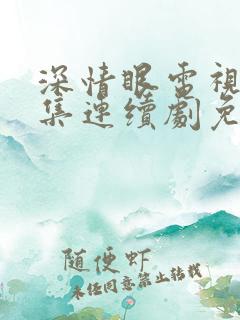 深情眼電視
集連續劇免
随便虾
未经同意禁止转载